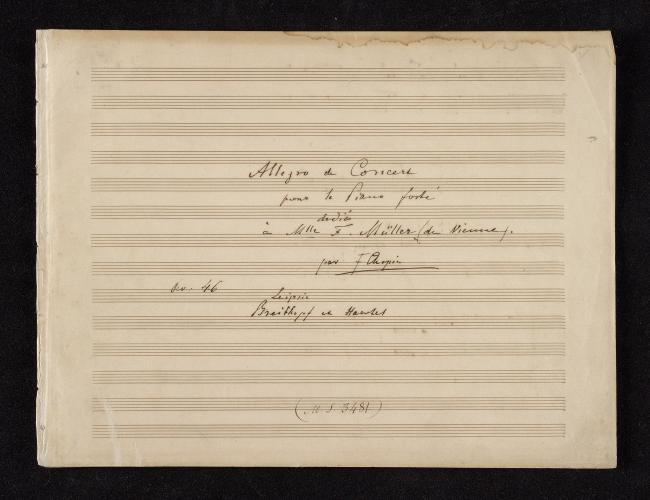 Allegro de Concert
pour le Piano forté
dediè
à Mlle F. Müller (de Vienne).
par F Chopin
Oev: 46
Leipsic
Breitkopf et Haertel
(M. S. 3481)